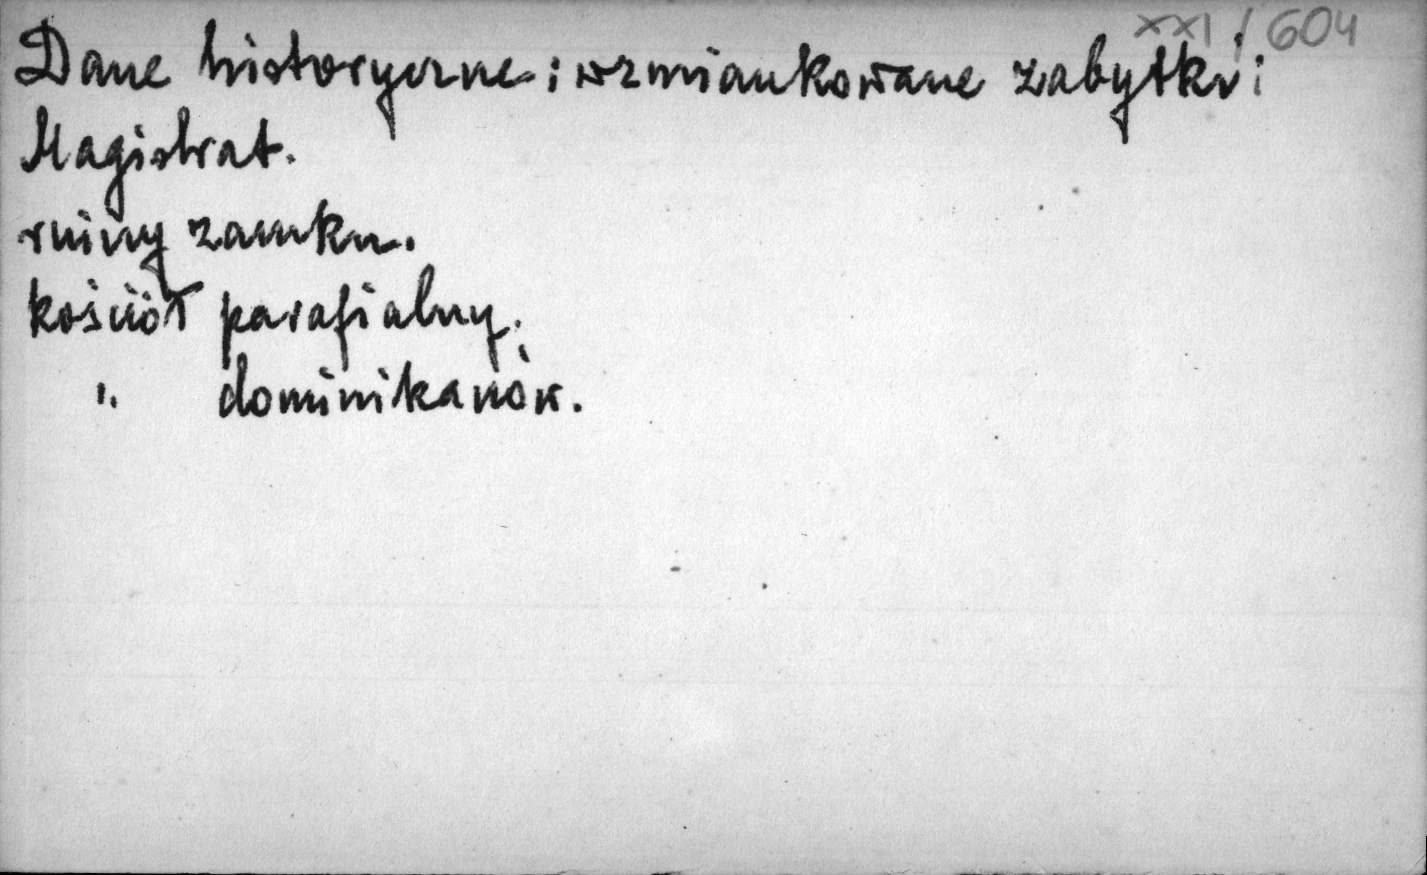 XXI/604
Dane historyczne i wzmiankowane zabytki:
Magistrat.
ruiny zamku.
kościół parafialny.
„ dominikanów.